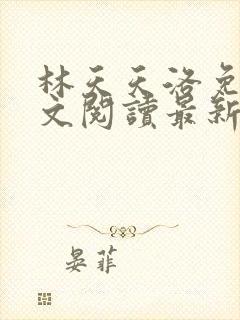 林天天洛免
文閱讀最新
晏菲